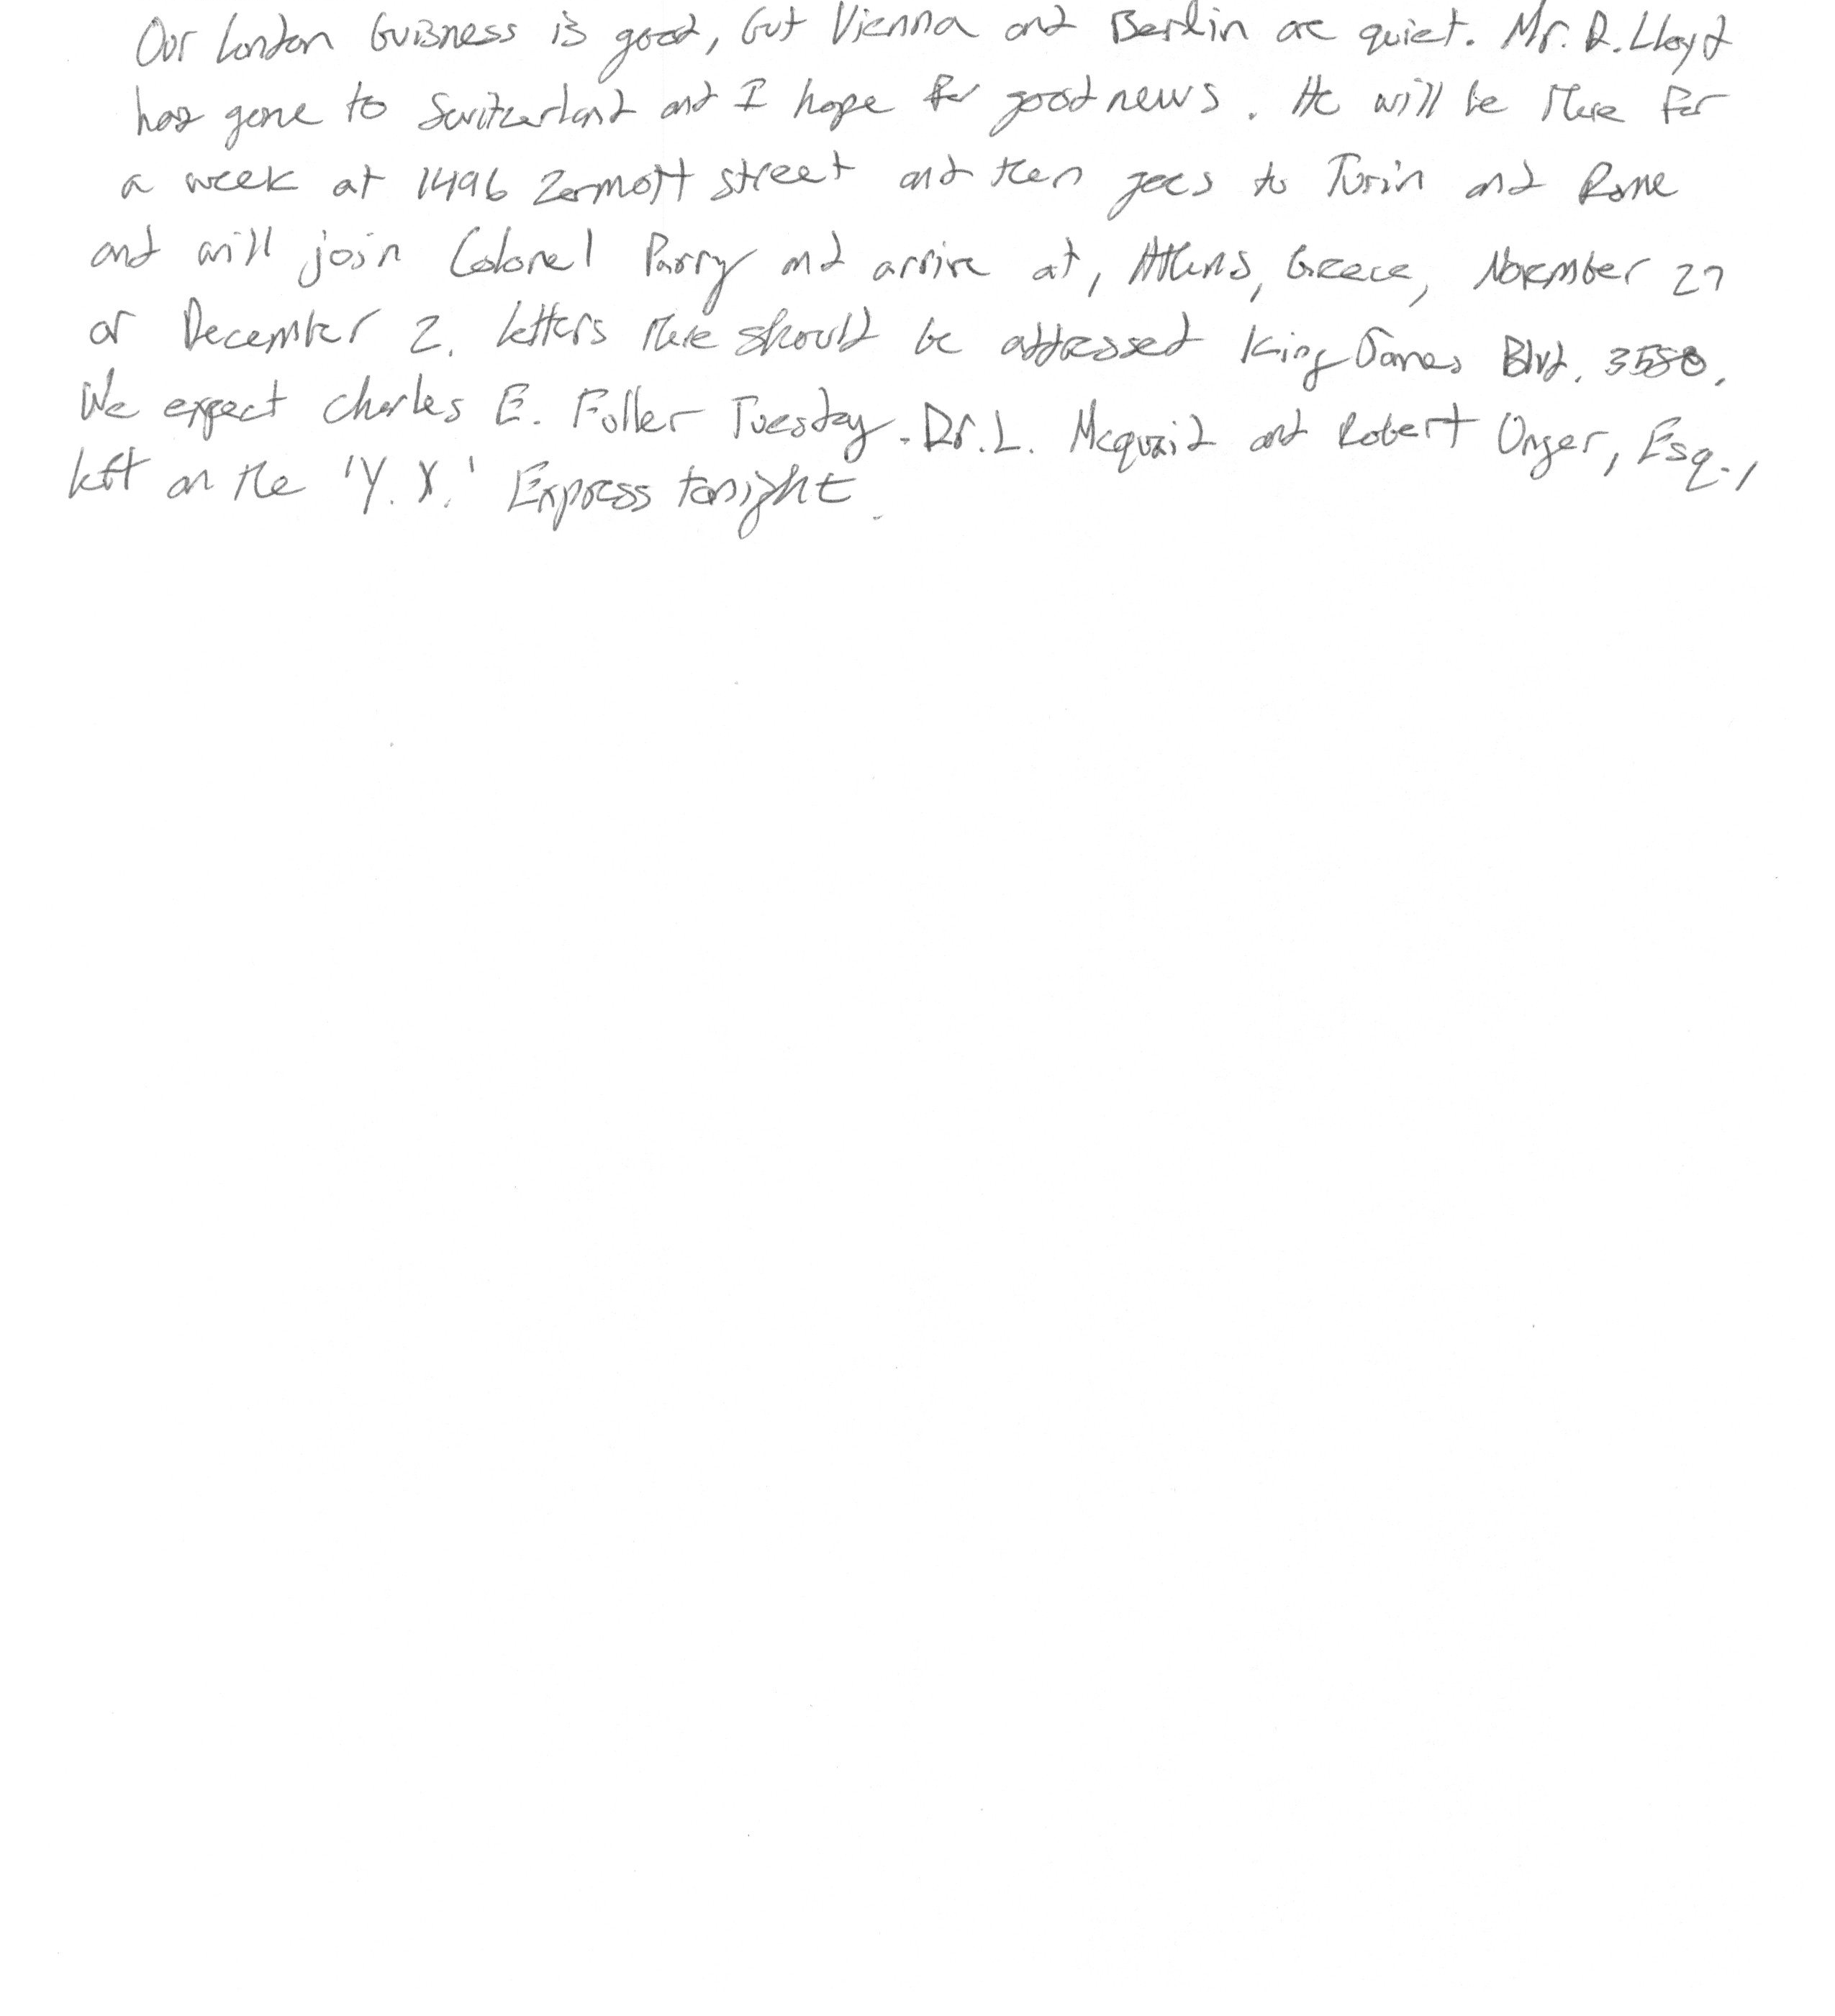 Our London buisness is good, but Vienna and Berlin are quiet. Mr. D. Lloyd
has gone to Switzerland and I hope for good news. He will be there for
a week at 1496 Zermott street and then goes to Turin and Rome
and will join Colonel Parry and arrive at, Athens, Greece, November 27
or December 2. Letters there should be addressed King James Blvd. 3580.
We expect Charles E. Fuller Tuesday. Dr. L. Mcquaid and Robert Unger, Esq.,
left on the 'Y. X.' Express tonight.